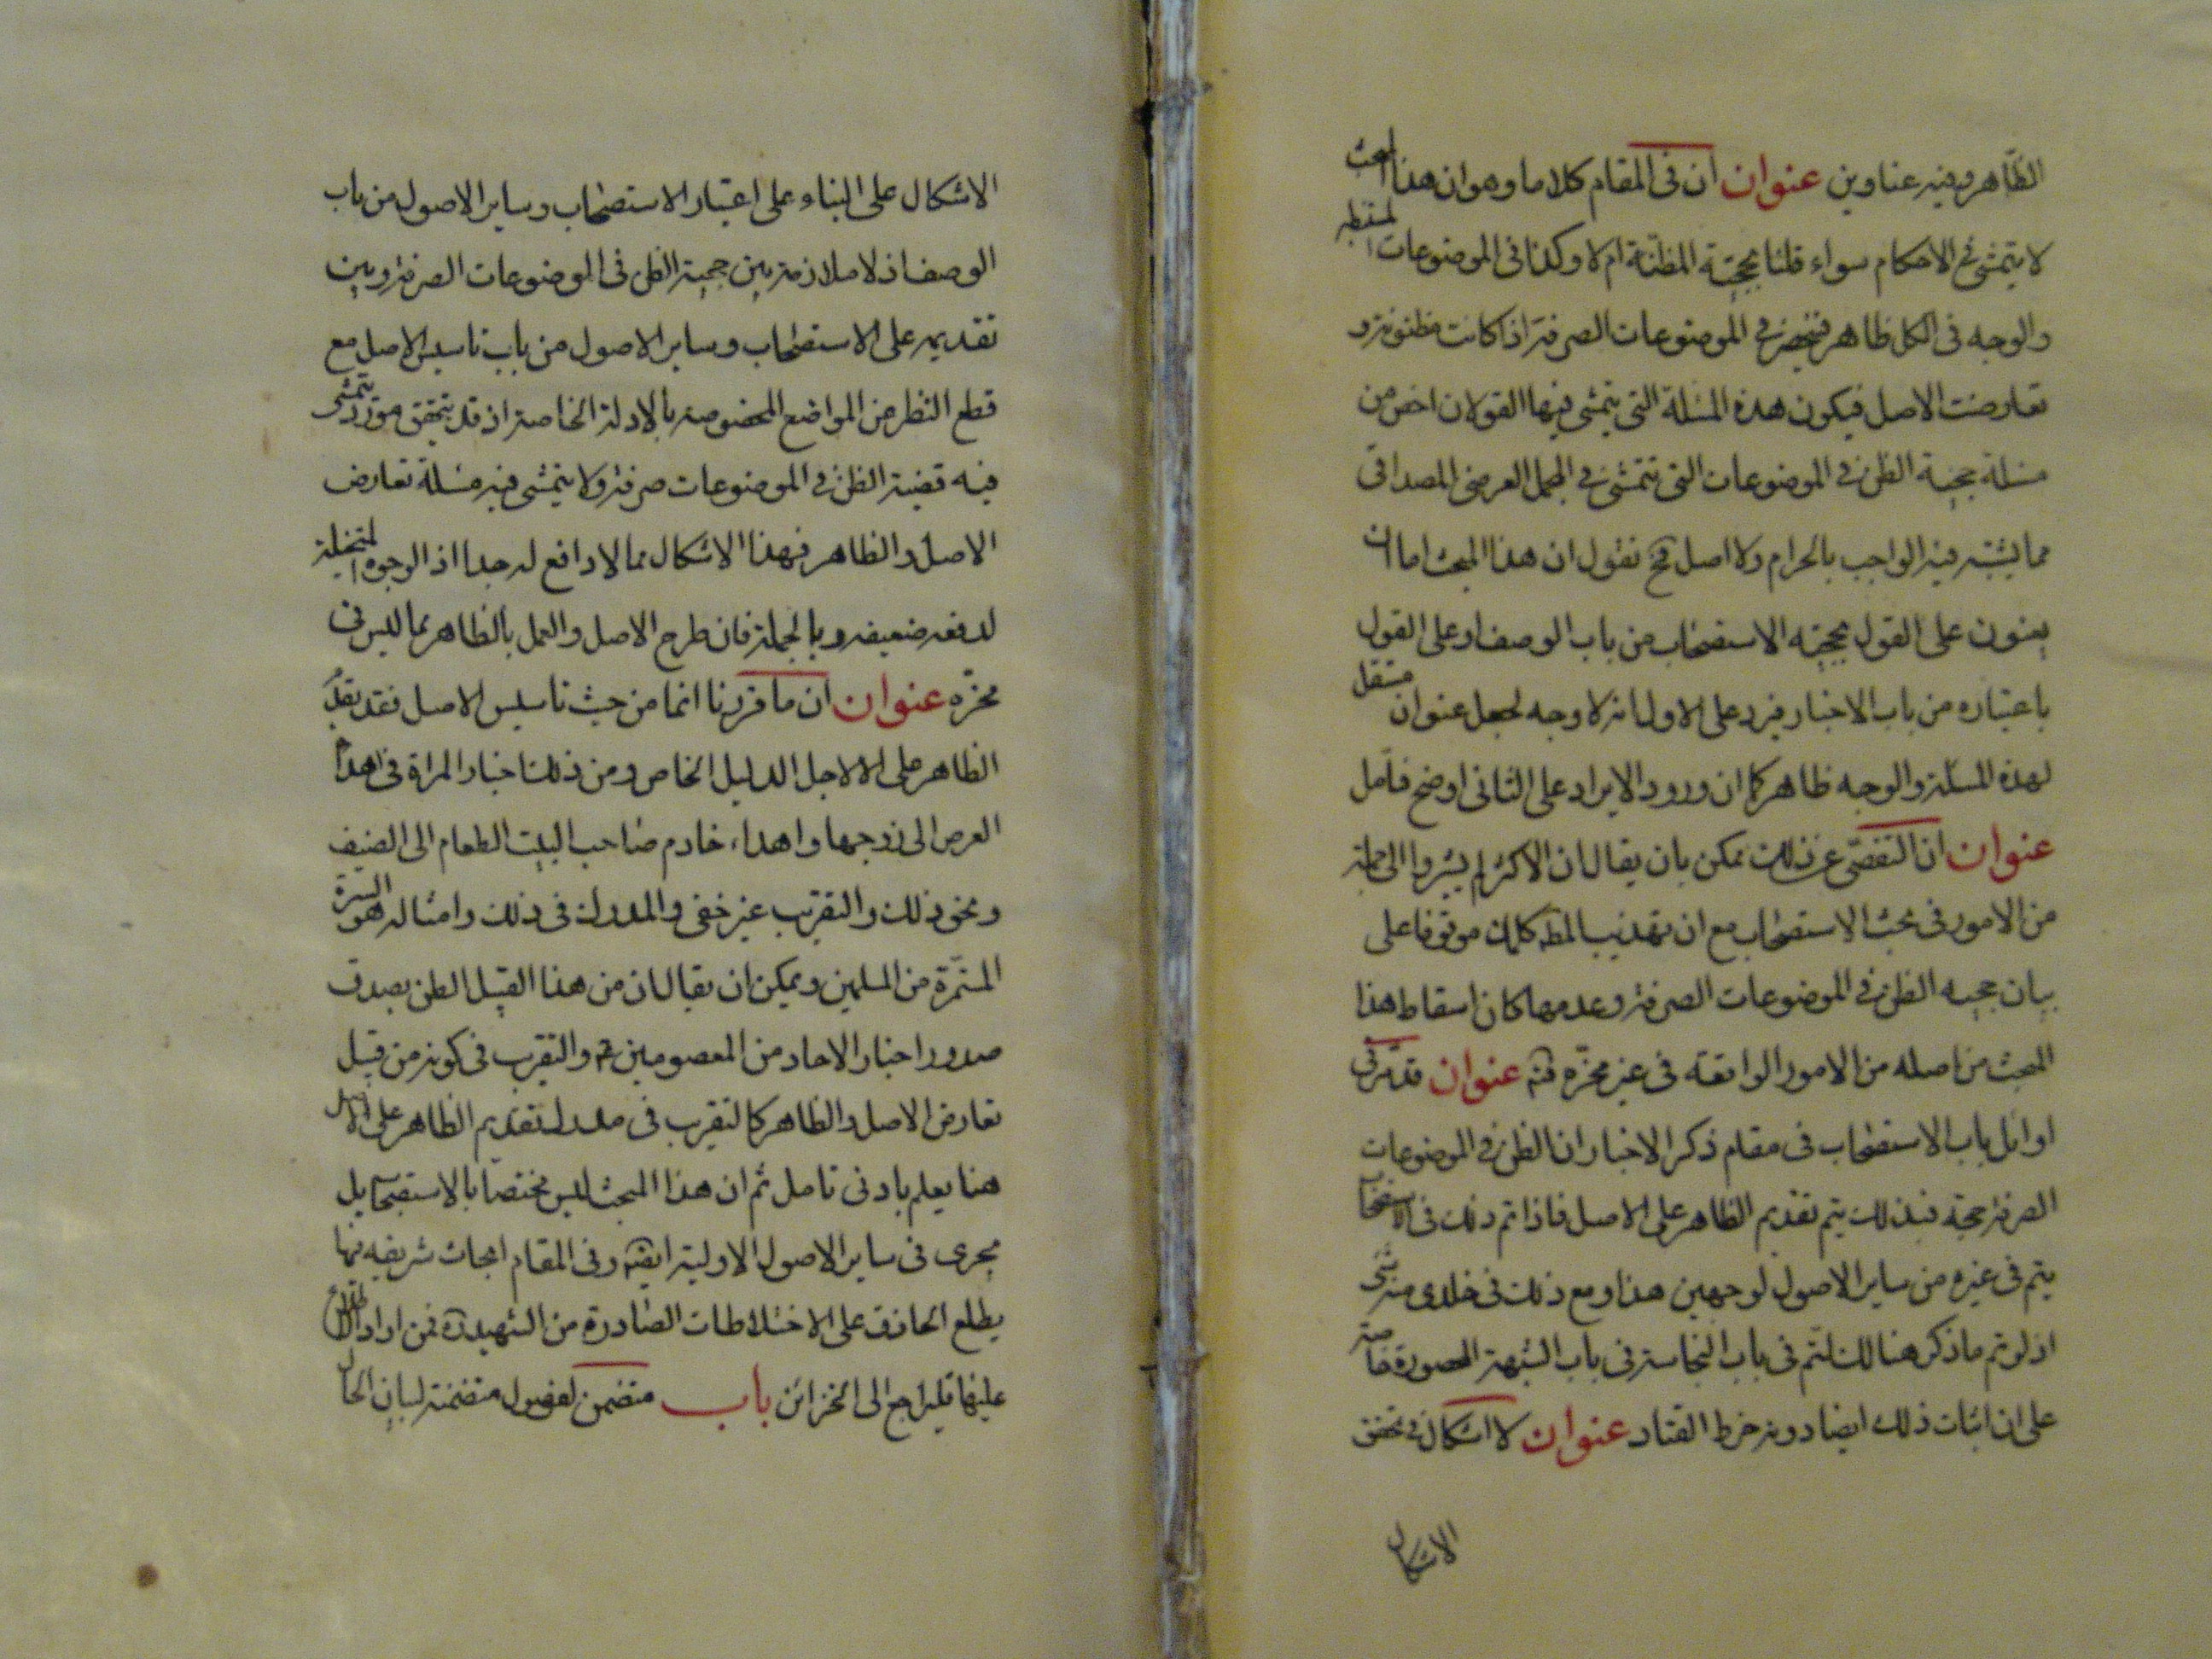 الظاهر وفيه عناوين عنوان ان فى المقام كلاما وهو ان هذا البحث
لا يتمشى فى الاحكام سواء قلنا بحجية المظنة ام لا وكذا فى الموضوعات المستنبطة
والوجه فى الكل ظاهر فينحصر فى الموضوعات الصرفة اذا كانت مظنونة و
تعارضت الاصل فيكون هذه المسئلة التى يتمشى فيها القولان اخص من
مسئلة حجية الظن فى الموضوعات التى تتمشى فى المجمل العرضى المصداقى
مما يشتبه فيه الواجب بالحرام ولا اصل فح نقول ان هذا المبحث اما ان
يعنون على القول بحجية الاستصحاب من باب الوصف او على القول
باعتباره من باب الاخبار فيرد على الاول انه لا وجه لجعل عنوان مستقل
لهذه المسئلة والوجه ظاهر كما ان ورود الايراد على الثانى اوضح فتامل
عنوان ان التفصى عن ذلك يمكن بان يقال ان الاكثر لم يشيروا الى جملة
من الامور فى بحث الاستصحاب مع ان تهذيب المط كان موقوفا على
بيان حجية الظن فى الموضوعات الصرفة وعدمها فكان اسقاط هذا
المبحث من اصله من الامور الواقعة فى غير محزه فتم عنوان قد مر فى
اوائل باب الاستصحاب فى مقام ذكر الاخبار ان الظن فى الموضوعات
الصرفة حجة فبذلك يتم تقديم الظاهر على الاصل فاذا تم ذلك فى الاستصحاب
يتم فى غيره من ساير الاصول لوجهين هذا ومع ذلك فى خلدى منه شى
اذ لو تم ما ذكر هنالك لتم فى باب النجاسة فى باب الشبهة المحصورة خاصة
على ان اثبات ذلك ايضا دونه خرط القتاد عنوان لا اشكال فى تحقق
الاشكال
الاشكال على البناء على اعتبار الاستصحاب وساير الاصول من باب
الوصف اذ لا ملازمة بين حجية الظن فى الموضوعات الصرفة وبين
تقديمه على الاستصحاب وساير الاصول من باب تاسيس الاصل مع
قطع النظر عن المواضع المخصوصة بالادلة الخاصة اذ قد يتحقق مورد يتمشى
فيه قضية الظن فى الموضوعات صرفة ولا يتمشى فيه مسئلة تعارض
الاصل والظاهر فهذا الاشكال مما لا دافع له جدا اذ الوجوه المتخيلة
لدفعه ضعيفه وبالجملة فان طرح الاصل والعمل بالظاهر مما ليس فى
محزه عنوان ان ما قررنا انما من حيث تاسيس الاصل فقد يقدم
الظاهر على الا لاجل الدليل الخاص ومن ذلك اخبار المراة فى اهداء
العرس الى زوجها واهداء خادم صاحب البيت الطعام الى الضيف
ونحو ذلك والتقريب غير خفى والمدرك فى ذلك وامثاله هو السيرة
المستمرة من المسلمين ويمكن ان يقال ان من هذا القبيل الظن بصدق
صدور اخبار الاحاد من المعصومين ع والتقريب فى كونه من قبيل
تعارض الاصل والظاهر كالتقريب فى مدرك تقديم الظاهر على الاصل
هنا يعلم بادنى تامل ثم ان هذا المبحث ليس مختصا بالاستصحاب بل
يجرى فى ساير الاصول الاولية ايضا وفى المقام ابحاث شريفه فيها
يطلع الحاذق على الاختلاطات الصادرة من الشهيد ره فمن اراد الاطلاع
عليها فليراجع الى الخزائن باب متضمن لفصول متضمنة لبيان الحال